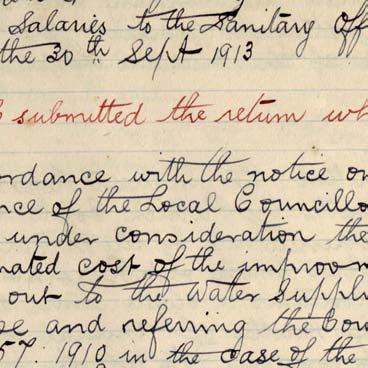 Salaries to the Sanitary Off
the 30th Sept 1913
submitted the return wh
ordance with the notice on
nce of the Local Councillo
under consideration the
mated cost of the improom
out to the Water Supply
and referring the Cou
57. 1910 in the case of the